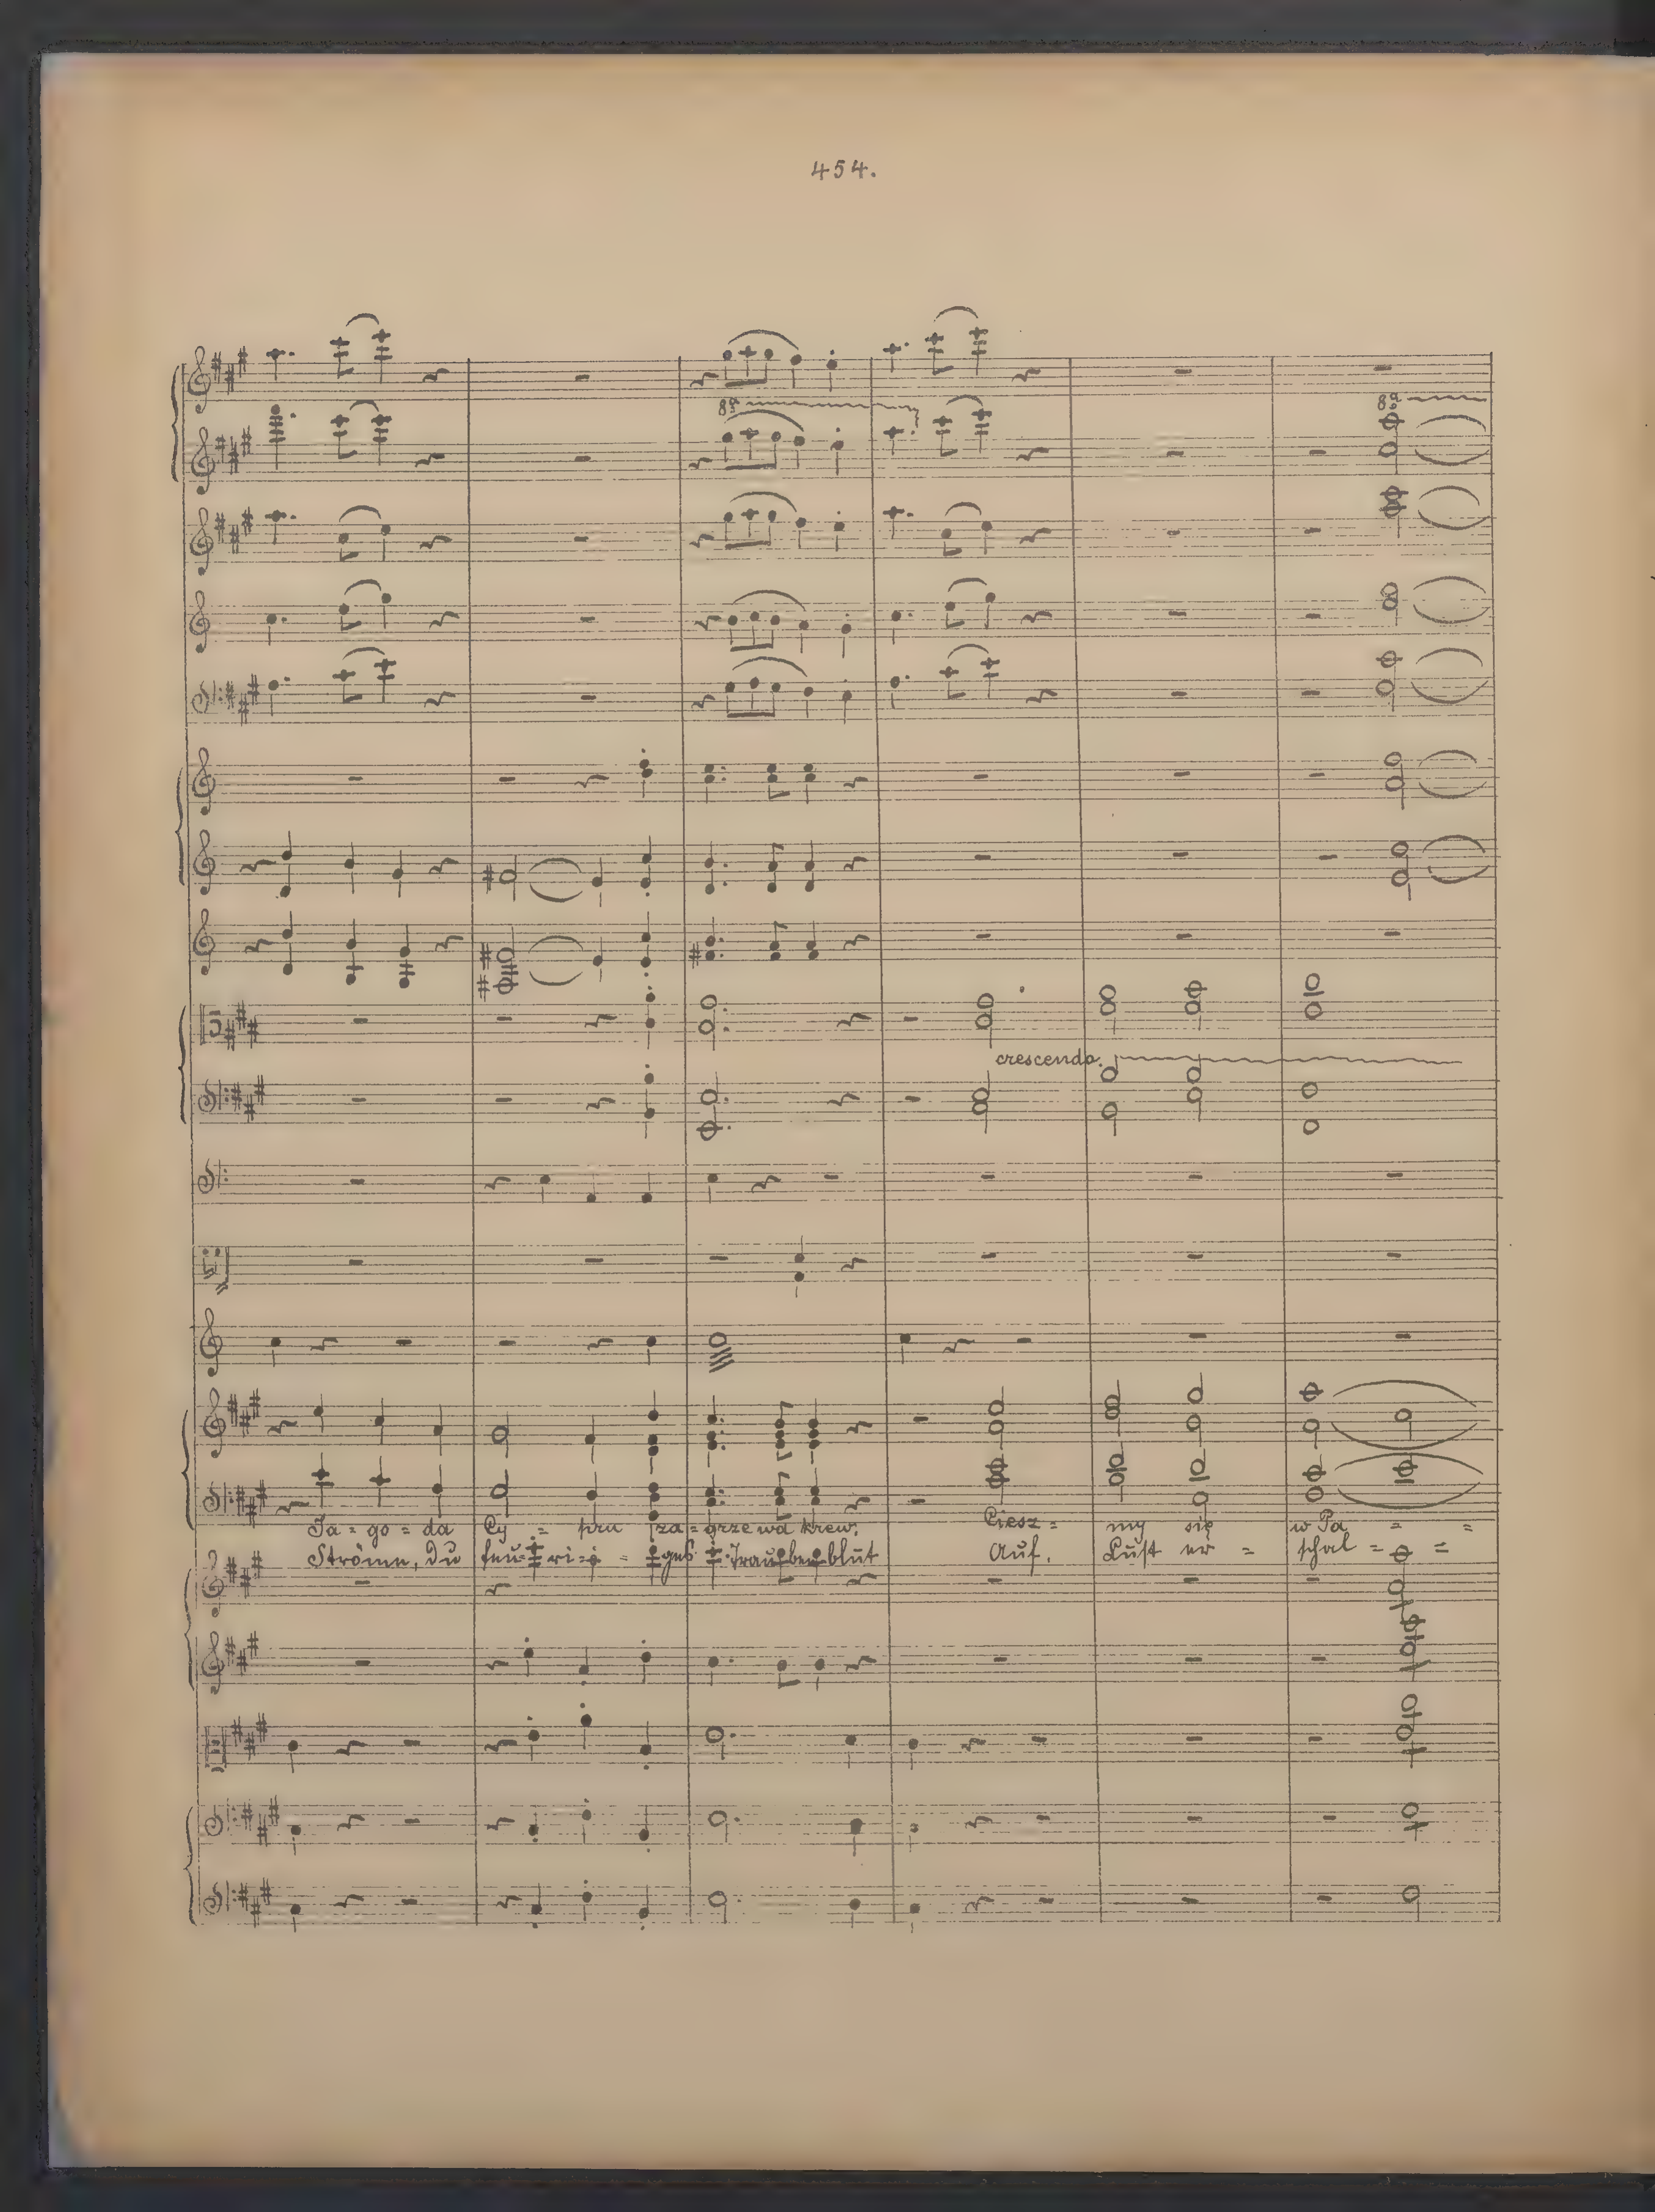 454.
8ª
8ª
crescendo.
Ja = go = da Cy = pru za = grzewa krew. Ciesz = my się w Pa = =
Ströme, du feu = ri = ges Traubenblut Auf, Lust er = schal = =